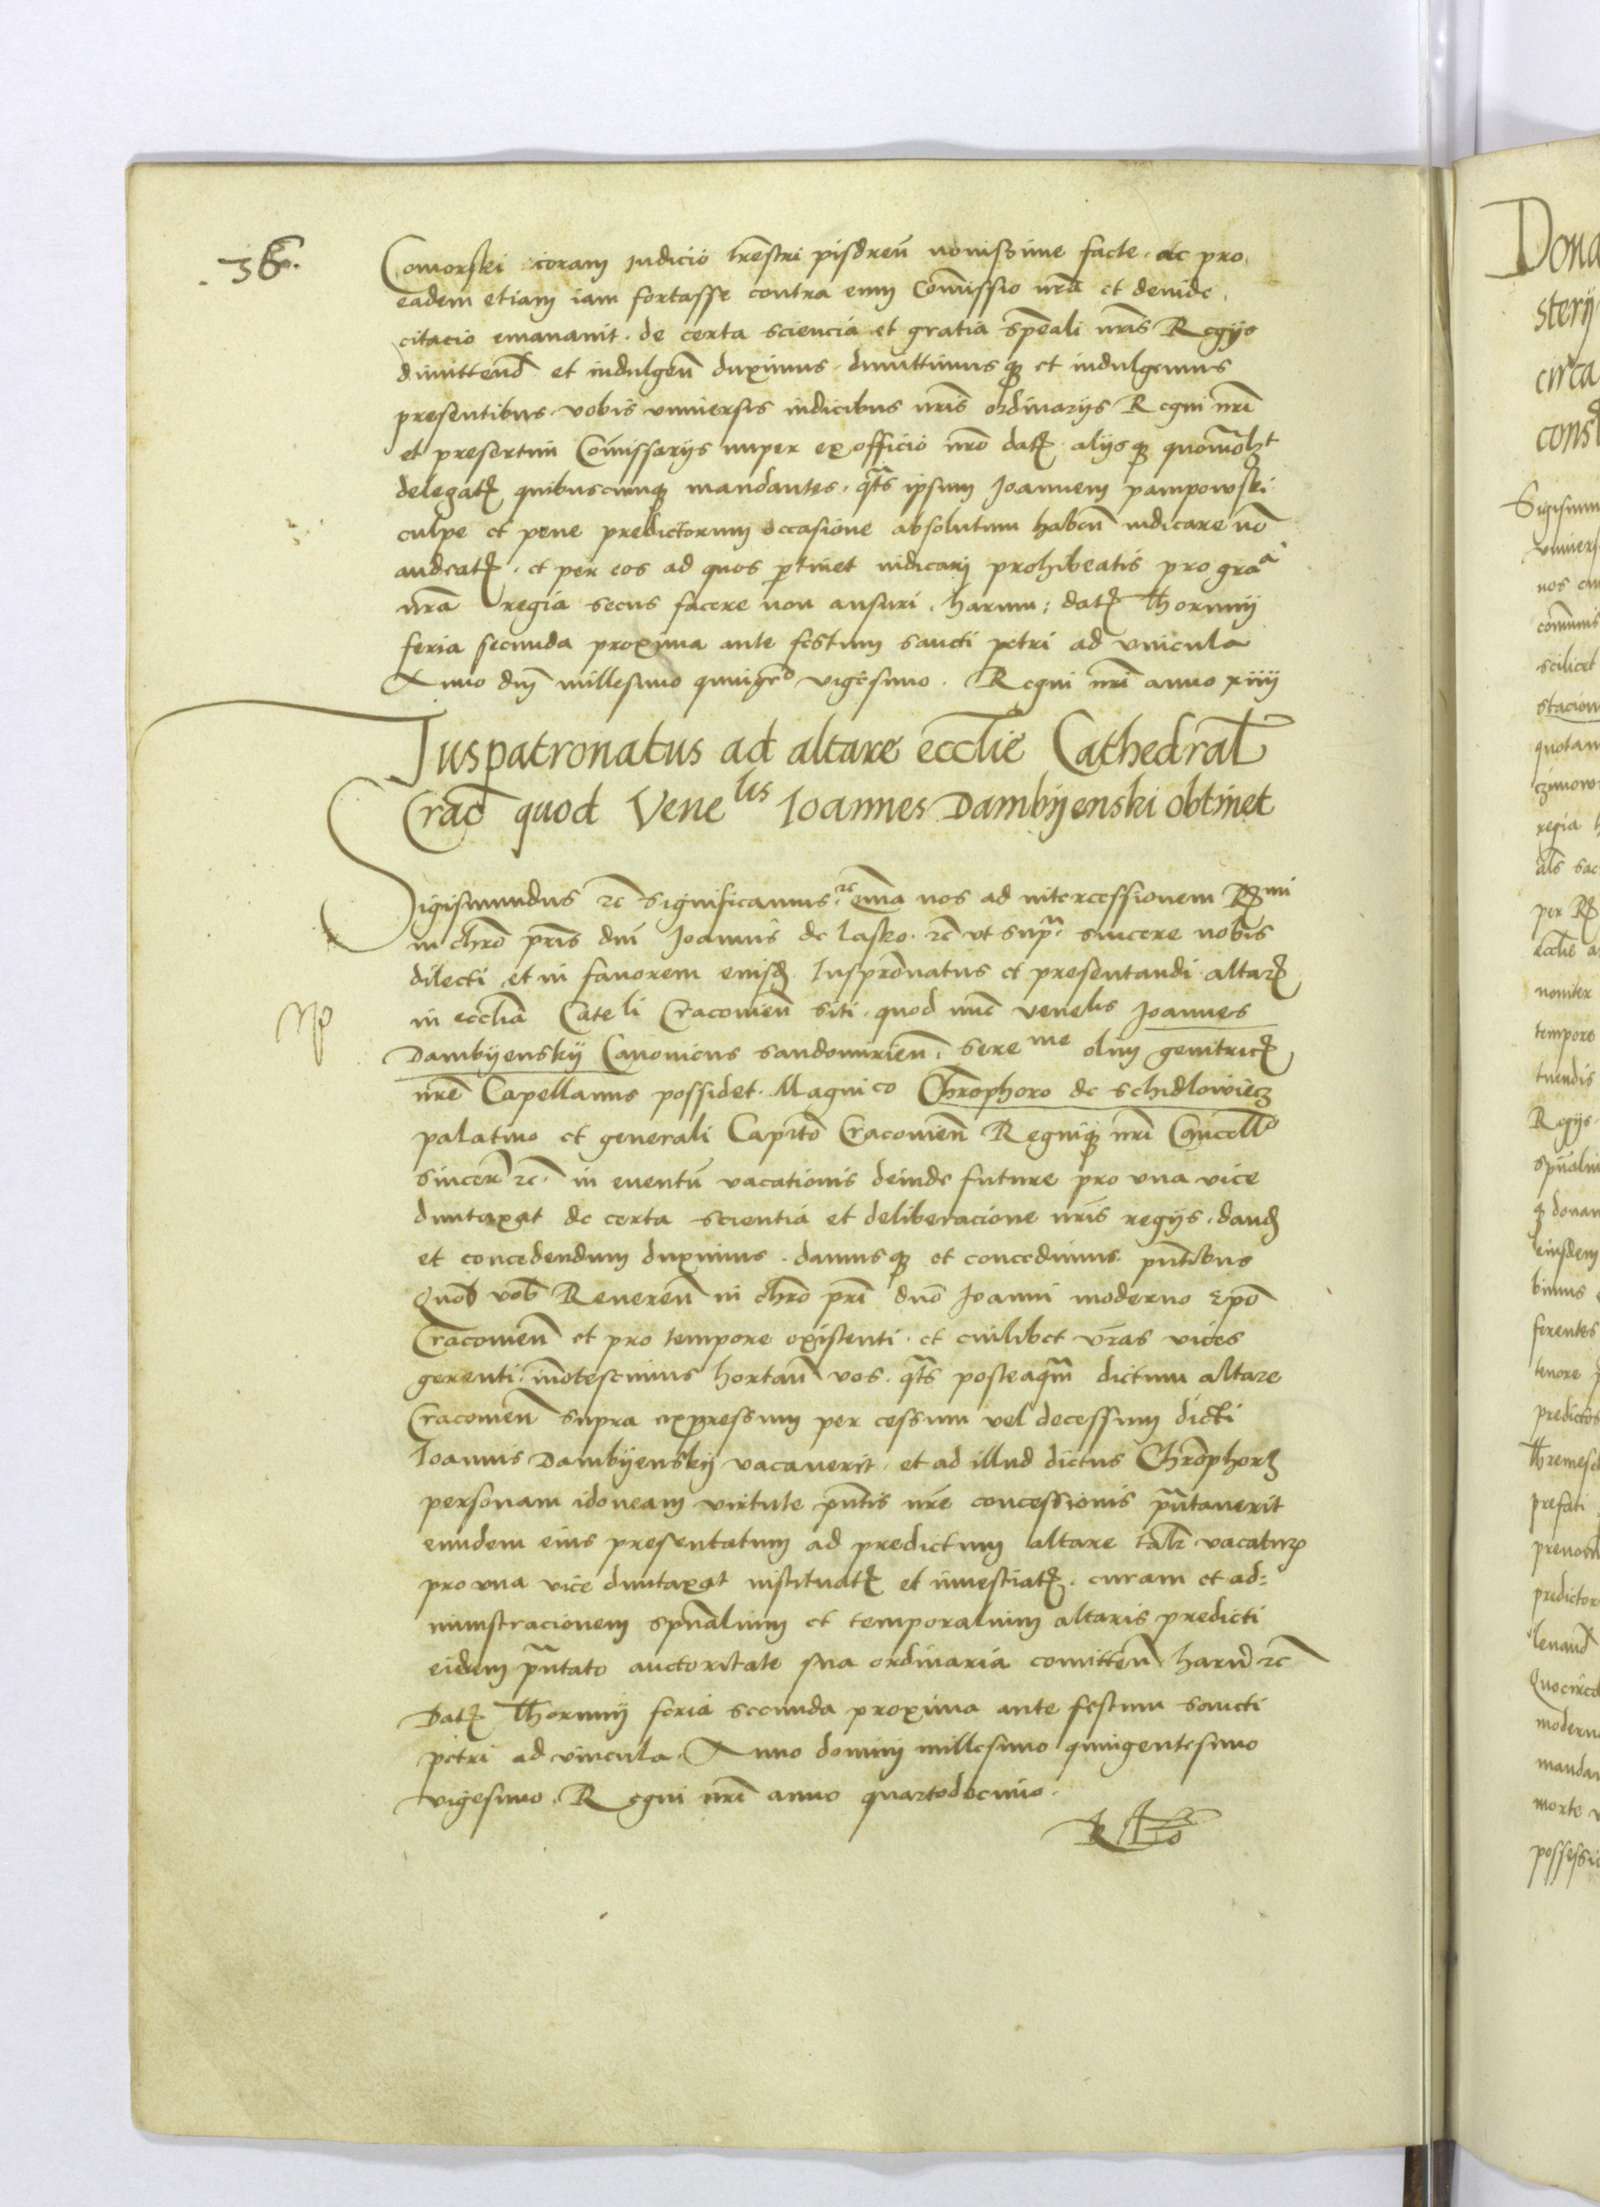 36.
Comorski coram iudicio trestri pisdreñ nouissime facte. ac pro
eadem etiam iam fortasse contra eum Comissio nrã et deinde
citacio emanauit. de certa sciencia et gratia speãli nris Regijs
dimittend et indulgeñ duximus. dimittimusqȝ et indulgemus
presentibus vobis vniuersis iudicibus nris ordinarijs Regni nri
et presertim Comissarijs nuper ex officio nro dat. alijsqȝ quomolibet
delegat quibuscunqȝ mandantes. qts ipsum Joannem pampowski
culpe et pene predictorum occasione absolutum habeñ iudicare nõ
audeat. et per eos ad quos ptinet iudicarj prohibeatis pro gra
nra regia secus facere non ausuri. harum: dat Thorunij
feria secunda proxima ante festum sancti petri ad vincula
Anno dnj millesimo quingᵐᵒ vigesimo. Regni nri anno xiiij
Juspatronatus ad altare ecclie Cathedral
Crac quod Venelis Joannes Dambyenski obtinet
Sigismundus rc significamus rc quia nos ad intercessionem Rmi
in chro pris dni Joannis de lasko. rc vt supra sincere nobis
dilecti et in fauorem eiusd. Juspronatus et presentandi altar
in ecclia Cateli Cracouieñ siti. quod nunc venelis Joannes
Dambyenskij Canonicus sandomirieñ. sereme olim genitric
nre Capellanus possidet. Magnico Chrophoro de schidlowiecz
palatino et generali Capito Cracouieñ Regniqȝ nri Cancello
sincer rc. in euentu vacationis deinde future pro vna vice
duntaxat de certa scientia et deliberacione nris regijs. dand
et concedendum duximus. damusqȝ et concedimus pntibus
Quod vob Revereñ in chro pri dno Joanni moderno Epo
Cracouieñ et pro tempore existenti. et cuilibet vras vices
gerenti. inotescimus hortañ vos. qts posteaqm dictum altare
Cracouieñ supra expressum per cessum vel decessum dicti
Joannis Dambyenskij vacauerit. et ad illud dictus Chrophor
personam idoneam virtute pntis nre concessionis pntauerit
eundem eius presentatum ad predictum altare talr vacatur
pro vna vice duntaxat instituat et inuestiat. curam et ad:
ministracionem spualium et temporalium altaris predicti
eidem pntato auctoritate sua ordinaria comitteñ. haru rc
Dat Thorunij feria secunda proxima ante festum sancti
petri ad vincula. Anno dominj millesimo quingentesimo
vigesimo. Regni nri anno quartodecimo.
Dona
sterij
circa
Sigismun
vniuers
nos
scilicet
quotan
regia
ecclie
tempore
Regijs
eiusdem
ferentes
tenore
predictos
prefati
predictor
moderno
manda
morte
possessi